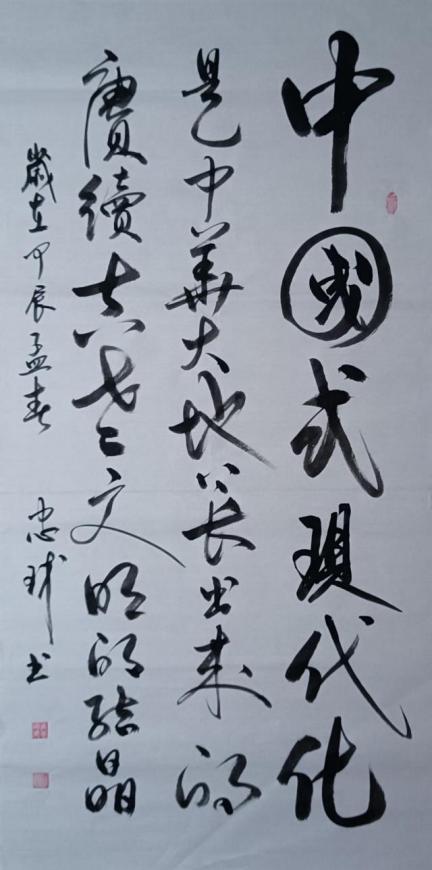 中國式現代化
是中華大地长出來的
賡續古老文明的結晶
歲在甲辰孟春 忠球书